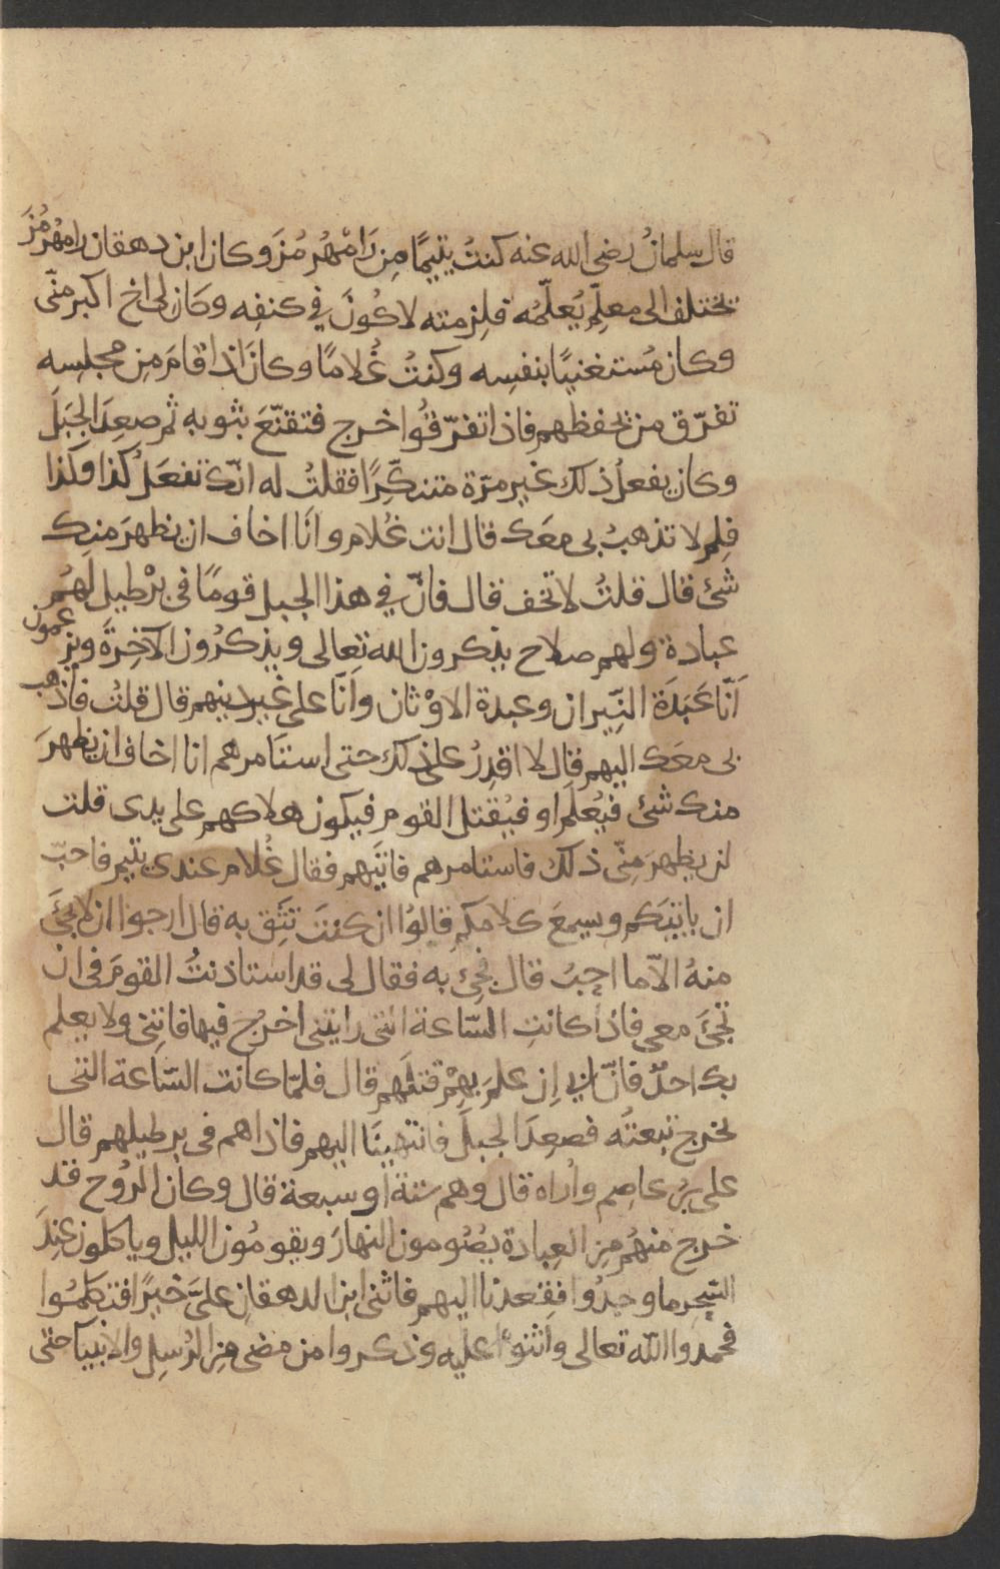 قال سلمانُ رضى الله عنه كنتُ يتيمًا مِن رَامْهُرمُزَ وكان ابن دهقان رامهُرمُزَ
يختلف الى معلّمٍ يُعلّمُه فلزمته لاكُونَ في كنفِه وكان لى اخ اكبر منّى
وكان مُستغنيًا بنفسِه وكنتُ غُلامًا وكانَ اذا قامَ مِن مجلسِه
تفرّق من يحفظهم فاذا تفرّقُوا خرج فتقنّعَ بثوبه ثم صعِدَ الجبَلَ
وكان يفعلُ ذلك غير مرّة متنكِّرًا فقلتُ له انّك تفعَلُ كذا وكذا
فلِم لا تذهبُ بى معَك قال انت غُلام وانَا اخاف ان يظهرَ منك
شئ قال قلتُ لا تخف قال فانّ في هذا الجبل قومًا فى بِرْطيل لَهُم
عبادة ولهم صلاح يذكرون الله تعالى ويذكرُون الآخِرةَ ويزعمون
اَنّا عَبَدَة النِّيران وعبدة الاوْثان وانّا على غير دينهم قال قلتُ فاذهب
بى معَك اليهم قال لا اقدِرُ على ذلك حتى استامرهم انا اخاف ان يظهرَ
منك شئ فيُعلَم او فيُقتل القوم فيكون هلاكهم على يدى قلت
لن يظهرَ مِنّى ذلك فاستامرهم فاتَيهم فقال غُلام عندى يتيم فاحبّ
ان ياتيَكم ويسمعَ كلامكم قالوُا ان كنتَ تثِق به قال ارجوا ان لا يجئَ
منهُ الاّ ما احِبُ قال فجئ به فقال لى قد استاذنتُ القومَ فى ان
تجئَ معى فاذا كانتِ السّاعة التى رايتنى اخرج فيها فاتِنى ولا يعلم
بك احدٌ فانّ ابى اِن علمَ بِهِمْ قتلَهم قال فلمّا كانت السّاعة التى
يخرج تبعتُه فصعِدَ الجبلَ فانتهينَا اليهم فاذا هم فى برطيلهم قال
على بنُ عاصِم واُراه قال وهم ستة او سبعة قال وكان الرُوح قد
خرج منهُم مِن العِبادة يصُومون النهارَ ويقومُون الليل وياكلون عِندَ
السّحِر ما وجدُوا فقعدنا اليهم فاثنى ابن الدهقان علىَّ خيرًا فتكلمُوا
فحمدوا الله تعالى واثنوْا عليه وذكروا من مضى مِن الرُسِل والانبيا حتى